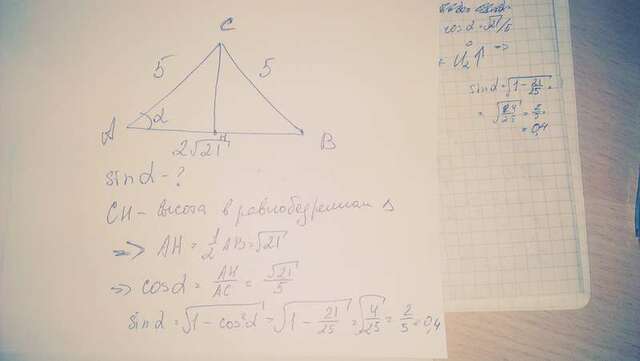 C
5 5
α
A H B
2√21
sin α - ?
CH - высота в равнобедренном Δ
=> AH = 1/2 AB = √21
=> cos α = AH/AC = √21/5
sin α = √(1 - cos²α) = √(1 - 21/25) = √(4/25) = 2/5 = 0,4
cos α = √21/5
sin α = √(1 - 21/25)
= √(4/25) = 2/5
= 0,4